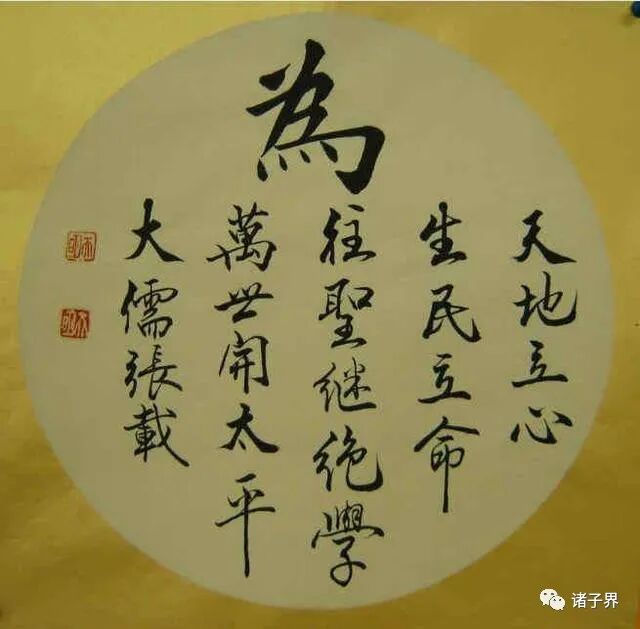 為
天地立心
生民立命
往聖继绝學
萬世開太平
大儒張載
诸子界